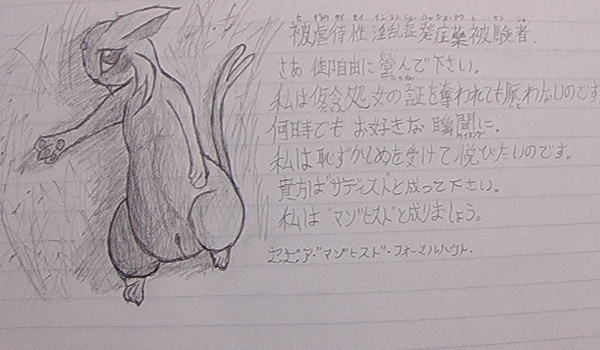 被虐待性淫乱症発症薬被験者.
さあ 御自由に営んで下さい。
私は仮令処女の証を奪われても厭わないのです
何時でも お好きな 瞬間に。
私は恥ずかしめを受けて悦びたいのです。
貴方は"サディスト"と成って下さい。
私は"マゾヒスト"と成りましょう。
セピア・"マゾヒスト"・フォーマルハウト.